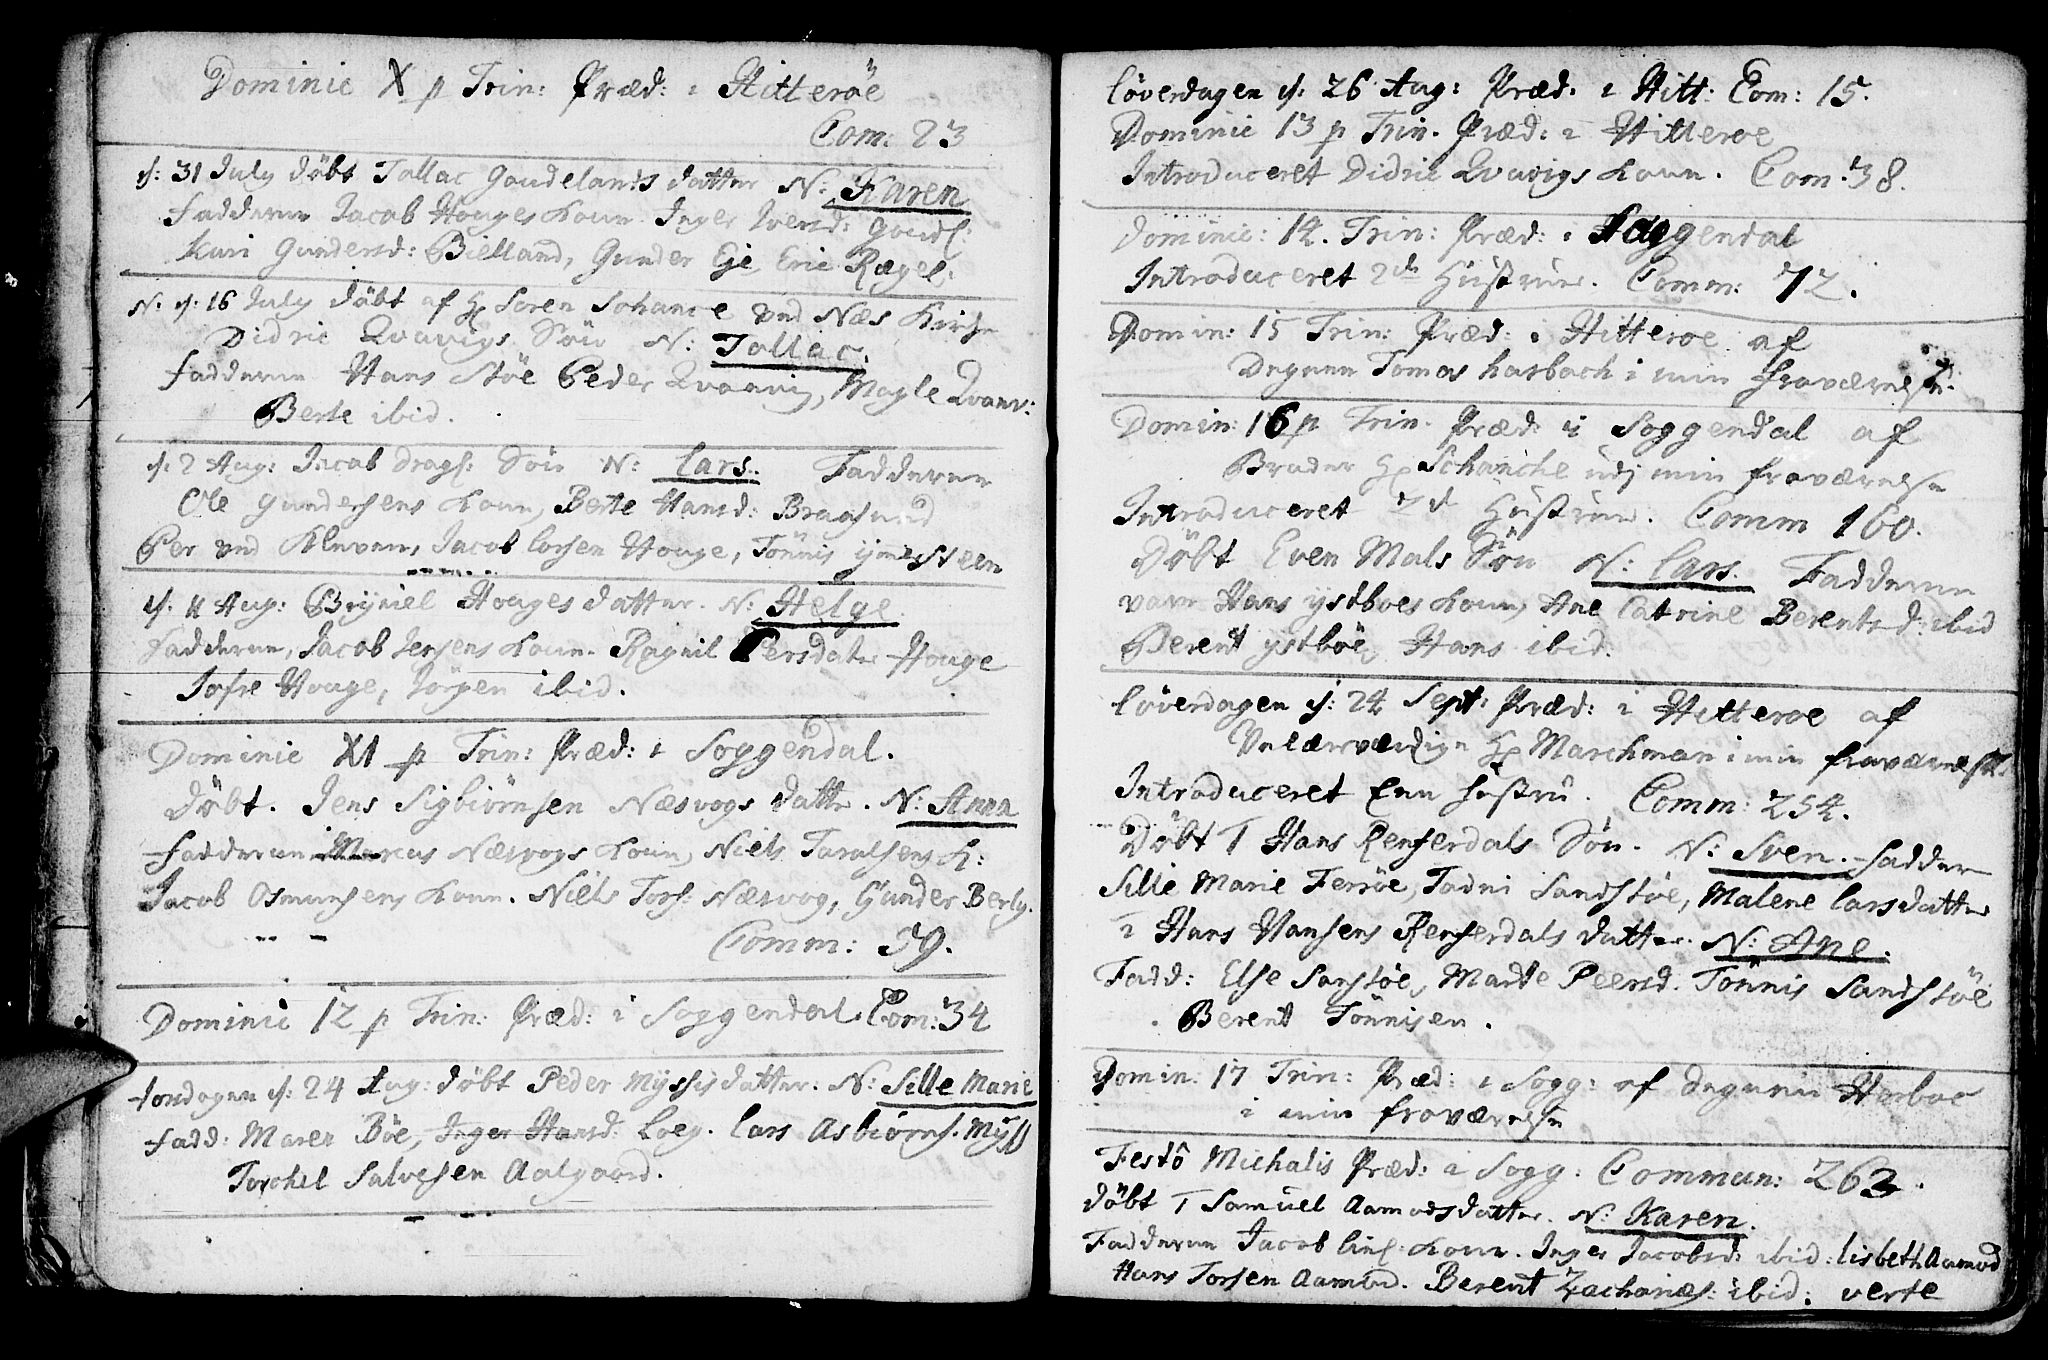 Dominic X p Trin: Præd: i Hitterøe
Com: 23
d: 31 July døbt Tallac Goudelands datter N: Karen
Fadderne Jacob Houges Kone Inger Iversd: Goudl:
Kari Gundersd: Bielland, Gunder Eje Eric Rægel.
N: d: 16 July døbt af Hr Søren Schance ved Næs Kirche
Didric Qvavigs Søn N: Tallac.
Fadderne Hans Støe Peder Qvavig, Magle Qvavv:
Berte ibid.
d: 2 Aug: Jacob Dragl: Søn N: Lars. Fadderne
Ole Gundersens Kone, Berte Hansd: Bragsund
Per ved Kleven, Jacob Lorsen Houge, Tønnis Steen
d: 11 Aug: Bryniel Houges datter. N: Helge
Fadderne, Jacob Jensens Kone. Ragnil Persdater Houge
Jofre Houge, Jørgen ibid.
Dominic XI p Trin: Præd: i Soggendal.
Døbt. Jens Sigbiørnsen Næsvogs datter. N: Anna
Fadderne Marcus Næsvogs Kone, Niels Taralsens K:
Jacob Osmunsens Kone. Niels Tors: Næsvog, Gunder Berly.
Comm: 59.
Dominic 12 p Trin: Præd: i Soggendal. Com: 34
Torsdagen d: 24 Aug: døbt Peder Myssis datter: N: Sille Marie
Fadd: Maren Bøe, Inger Hansd: Loeg. Lars Asbiørns. Myss
Torchel Salvesen Aalgaard.
Løverdagen d: 26 Aug: Præd: i Hitt: Com: 15.
Dominic 13 p Trin. Præd: i Hitteroe
Introduceret Didric Qvavigs Kone. Com: 38.
Dominic: 14. Trin: Præd: i Saggendal
Introduceret 2de Hustruer. Comm: 72.
Domin: 15 Trin: Præd: i Hitteroe af
Degnen Tomas Harbach i min fraværelse.
Domin: 16 p Trin. Præd: i Soggendal af
Broder Hr Schanche udj min fraværelse
Introduceret 7 Hustruer. Comm 160.
Døbt Even Mals Søn N: Lars. Fadderne
vare Hans ystboes Kone, Ane Catrine Berentsd: ibid
Berent ystbøe, Hans ibid.
Løverdagen d: 24 Sept: Præd: i Hitteroe af
Velærværdige Hr Marchman i min fraværelse.
Introduceret Een Hustru. Comm: 254.
Døbt 1 Hans Renserdals Søn. N: Sven. Fadder
Sille Marie Ferrøe, Tadni Sandstøe, Malene Larsdatter
2 Hans Hansens Renserdals datter. N: Ane.
Fadd: Else Sanstøe, Marte Peersd. Tønnis Sandstøe
Berent Tønnisen.
Domin: 17 Trin: Præd: i Sogg: af degnen Harboe
i min fraværelse
Festo Michalis Præd: i Sogg: Commun: 263.
døbt 1 Samuel Aamods datter. N: Karen.
Fadderne Jacob Kone. Inger Jacobsd: ibid: Lisbeth Aamod
Hans Torsen Aamod. Berent Zachariæs: ibid: verte